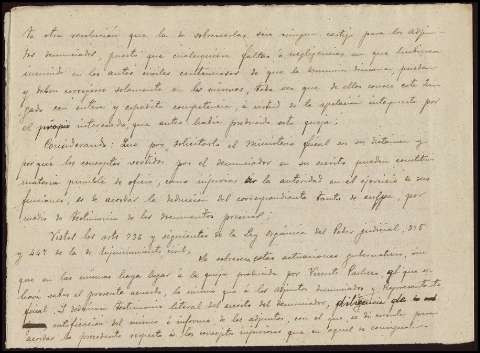 ta otra resolución que la de sobreseerlas, sin ningún castigo para los adjun-
tos denunciados, puesto que cualesquiera faltas ó negligencias en que hubieran
incurrido en los autos civiles contenciosos de que la denuncia dimana, pueden
y deben corregirse solamente en los mismos, toda vez que de ellos conoce este Juz-
gado con entera y expedita competencia, á virtud de la apelación interpuesta por
el propio interesado, que antes había producido esta queja;
Considerando: Que por solicitarlo el Ministerio fiscal en su dictamen y
porque los conceptos vertidos por el denunciador en su escrito pueden constituir
materia punible de oficio, como injurias á la autoridad en el ejercicio de sus
funciones, es de acordar la deducción del correspondiente tanto de culpa, por
medio de testimonio de los documentos precisos;
Vistos los arts 236 y siguientes de la Ley orgánica del Poder judicial,
y 44 de la de Enjuiciamiento civil,
Se sobreseen estas actuaciones gubernativas, sin
que en las mismas haya lugar á la queja producida por Vicente al que se
hará saber el presente acuerdo, lo mismo que á los adjuntos denunciados y Representante
fiscal, y testimonio literal del escrito del denunciador, diligencia de
ratificación del mismo é informe de los adjuntos, con el que se dé cuenta para
acordar lo procedente respecto á los conceptos injuriosos que en aquel se consignan.